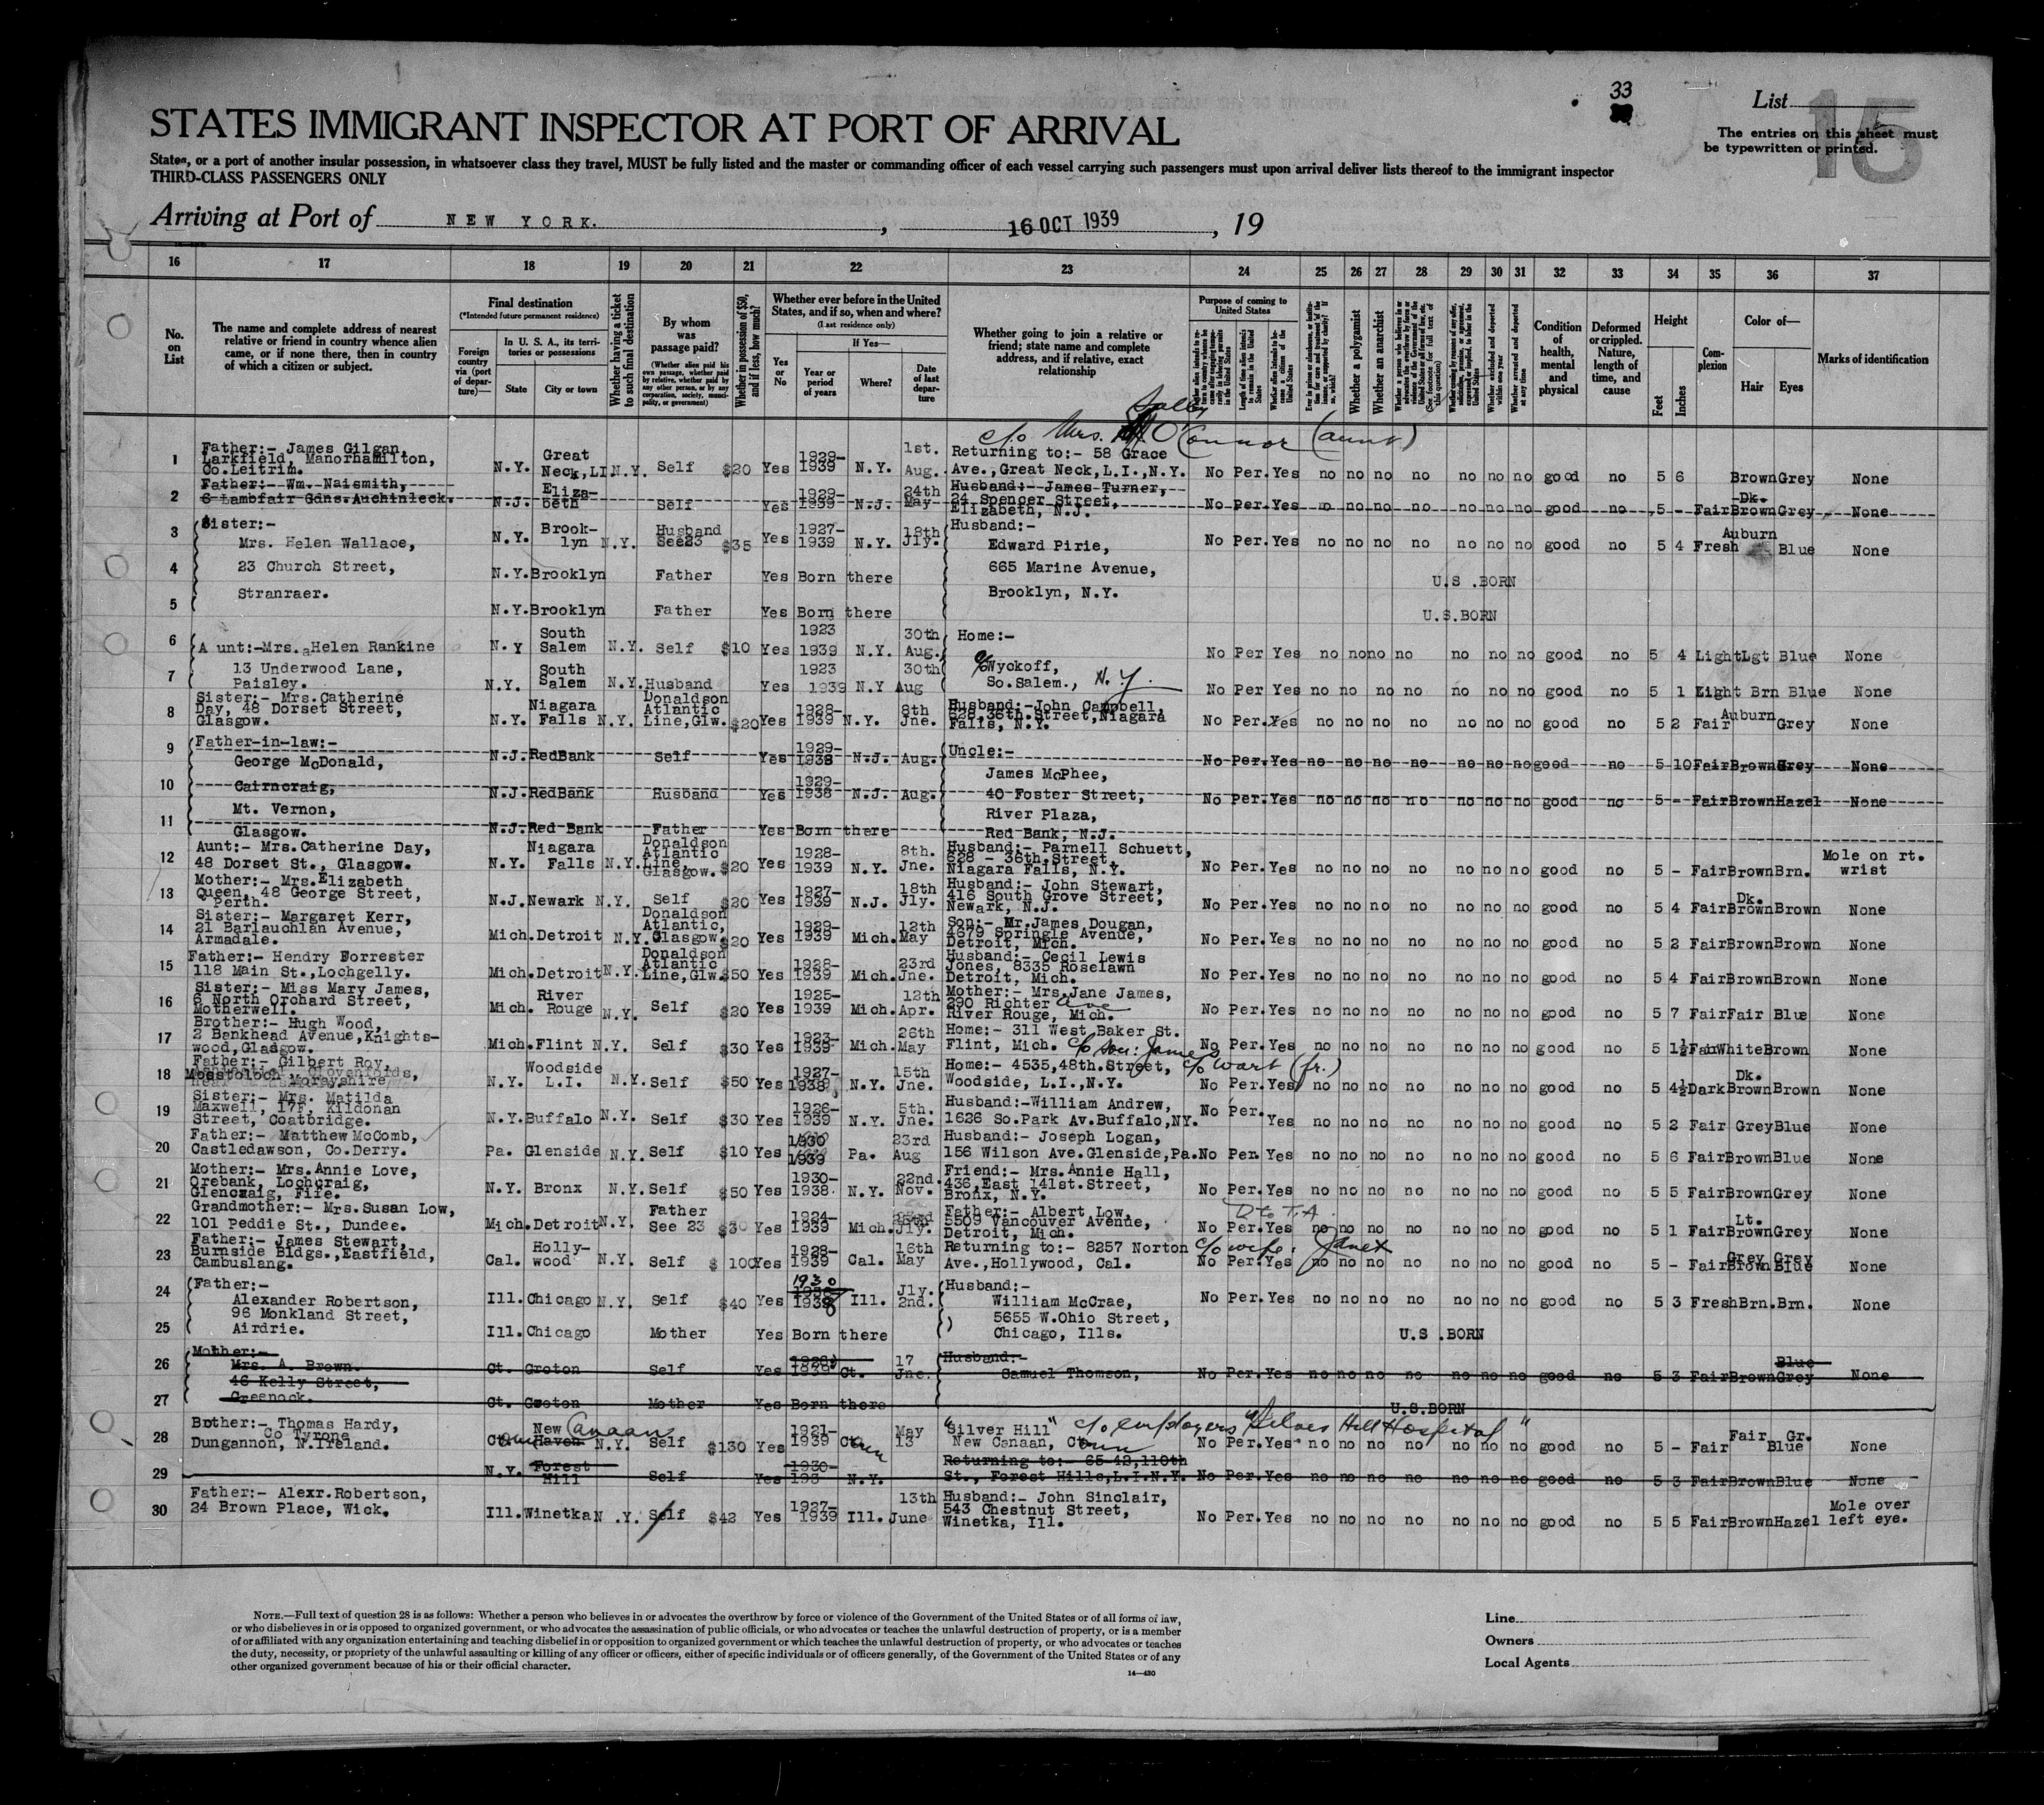 33
List
15
STATES IMMIGRANT INSPECTOR AT PORT OF ARRIVAL
The entries on this sheet must
be typewritten or printed.
States, or a port of another insular possession, in whatsoever class they travel, MUST be fully listed and the master or commanding officer of each vessel carrying such passengers must upon arrival deliver lists thereof to the immigrant inspector
THIRD-CLASS PASSENGERS ONLY
Arriving at Port of NEW YORK. , 16 OCT 1939 , 19
16 17 18 19 20 21 22 23 24 25 26 27 28 29 30 31 32 33 34 35 36 37
No. on List
The name and complete address of nearest relative or friend in country whence alien came, or if none there, then in country of which a citizen or subject.
Final destination
(*Intended future permanent residence)
Foreign country via (port of departure)—
In U. S. A., its territories or possessions
State
City or town
Whether having a ticket to such final destination
By whom was passage paid?
(Whether alien paid his own passage, whether paid by relative, whether paid by any other person, or by any corporation, society, municipality, or government)
Whether in possession of $50, and if less, how much?
Whether ever before in the United States, and if so, when and where?
(Last residence only)
Yes or No
If Yes—
Year or period of years
Where?
Date of last departure
Whether going to join a relative or friend; state name and complete address, and if relative, exact relationship
Purpose of coming to United States
Whether a polygamist
Whether an anarchist
Condition of health, mental and physical
Deformed or crippled. Nature, length of time, and cause
Height
Feet
Inches
Complexion
Color of—
Hair
Eyes
Marks of identification
c/o Mrs. Sally O'Connor (aunt)
1 Father:- James Gilgan, Larkfield, Manorhamilton, Co.Leitrim. N.Y. Great Neck,LI N.Y. Self $20 Yes 1929-1939 N.Y. 1st. Aug. Returning to:- 58 Grace Ave.,Great Neck,L.I.,N.Y. No Per. Yes no no no no no no no good no 5 6 Brown Grey None
2 Father:- Wm. Naismith, 6 Lambfair Gdns.Auchinleck. N.J. Elizabeth Self Yes 1929-1939 N.J. 24th May Husband:- James Turner, 24 Spencer Street, Elizabeth, N.J. No Per. Yes no no no no no no no good no 5 - Fair Dk. Brown Grey None
3 Sister:- Mrs. Helen Wallace, N.Y. Brook-lyn N.Y. Husband See23 $35 Yes 1927-1939 N.Y. 18th Jly. Husband:- Edward Pirie, No Per. Yes no no no no no no no good no 5 4 Fresh Auburn Blue None
4 23 Church Street, N.Y. Brooklyn Father Yes Born there 665 Marine Avenue, U.S.BORN
5 Stranraer. N.Y. Brooklyn Father Yes Born there Brooklyn, N.Y. U.S.BORN
6 Aunt:-Mrs. Helen Rankine N.Y South Salem N.Y. Self $10 Yes 1923 1939 N.Y. 30th Aug. Home:- No Per Yes no no no no no no no good no 5 4 Light Lgt Blue None
7 13 Underwood Lane, Paisley. N.Y. South Salem N.Y. Husband Yes 1923 1939 N.Y 30th Aug c/o Wyckoff, So.Salem., N.Y. No Per Yes no no no no no no no good no 5 1 Light Brn Blue None
8 Sister:- Mrs.Catherine Day, 48 Dorset Street, Glasgow. N.Y. Niagara Falls N.Y. Donaldson Atlantic Line,Glw. $20 Yes 1928-1939 N.Y. 8th Jne. Husband:-John Campbell, 628,36th.Street,Niagara Falls, N.Y. No Per. Yes no no no no no no no good no 5 2 Fair Auburn Grey None
9 Father-in-law:- George McDonald, N.J. RedBank Self Yes 1929-1938 N.J. Aug. Uncle:- James McPhee, No Per. Yes no no no no no no no good no 5 10 Fair Brown Grey None
10 Cairncraig, Mt. Vernon, N.J. RedBank Husband Yes 1929-1938 N.J. Aug. 40 Foster Street, River Plaza, No Per. Yes no no no no no no no good no 5 - Fair Brown Hazel None
11 Glasgow. N.J. Red Bank Father Yes Born there Red Bank, N.J.
12 Aunt:- Mrs.Catherine Day, 48 Dorset St., Glasgow. N.Y. Niagara Falls N.Y. Donaldson Atlantic Line Glasgow. $20 Yes 1928-1939 N.Y. 8th. Jne. Husband:- Parnell Schuett, 628 - 36th.Street, Niagara Falls, N.Y. No Per. Yes no no no no no no no good no 5 - Fair Brown Brn. Mole on rt. wrist
13 Mother:- Mrs.Elizabeth Queen, 48 George Street, Perth. N.J. Newark N.Y. Self $20 Yes 1927-1939 N.J. 18th Jly. Husband:- John Stewart, 416 South Grove Street, Newark, N.J. No Per. Yes no no no no no no no good no 5 4 Fair Dk. Brown Brown None
14 Sister:- Margaret Kerr, 21 Barlauchlan Avenue, Armadale. Mich. Detroit N.Y. Donaldson Atlantic, Glasgow. $20 Yes 1929-1939 Mich. 12th May Son:- Mr.James Dougan, 4679 Springle Avenue, Detroit, Mich. No Per. Yes no no no no no no no good no 5 2 Fair Brown Brown None
15 Father:- Hendry Forrester 118 Main St.,Lochgelly. Mich. Detroit N.Y. Donaldson Atlantic Line, $50 Yes 1928-1939 Mich. 23rd Jne. Husband:- Cecil Lewis Jones, 8335 Roselawn Detroit, Mich. No Per. Yes no no no no no no no good no 5 4 Fair Brown Brown None
16 Sister:- Miss Mary James, 6 North Orchard Street, Motherwell. Mich. River Rouge N.Y. Self $20 Yes 1925-1939 Mich. 12th Apr. Mother:- Mrs.Jane James, 290 Richter ave River Rouge, Mich. No Per. Yes no no no no no no no good no 5 7 Fair Fair Blue None
17 Brother:- Hugh Wood, 2 Bankhead Avenue,Knights-wood,Glasgow. Mich. Flint N.Y. Self $30 Yes 1923-1939 Mich. 26th May Home:- 311 West Baker St. Flint, Mich. c/o son: James No Per. Yes no no no no no no no good no 5 1½ Fair White Brown None
18 Father:- Gilbert Roy, Mosstoloch, Morayshire N.Y. Woodside L.I. N.Y. Self $50 Yes 1927-1938 N.Y. 15th Jne. Home:- 4535,48th.Street, Woodside, L.I.,N.Y. No Per. Yes no no no no no no no good no 5 4½ Dark Dk. Brown Brown None
19 Sister:- Mrs. Matilda Maxwell, 17F, Kildonan Street, Coatbridge. N.Y. Buffalo N.Y. Self $30 Yes 1926-1939 N.Y. 5th. Jne. Husband:-William Andrew, 1626 So.Park Av.Buffalo,NY. No Per. Yes no no no no no no no good no 5 2 Fair Grey Blue None
20 Father:- Matthew McComb, Castledawson, Co.Derry. Pa. Glenside N.Y. Self $10 Yes 1930 1939 Pa. 23rd Aug Husband:- Joseph Logan, 156 Wilson Ave.Glenside,Pa. No Per. Yes no no no no no no no good no 5 6 Fair Brown Blue None
21 Mother:- Mrs.Annie Love, Orebank, Lochcraig, Glencraig, Fife. N.Y. Bronx N.Y. Self $50 Yes 1930-1938. N.Y. 22nd. Nov. Friend:- Mrs.Annie Hall, 436,East 141st.Street, Bronx, N.Y. No Per. Yes no no no no no no no good no 5 5 Fair Brown Grey None
22 Grandmother:- Mrs.Susan Low, 101 Peddie St., Dundee. Mich. Detroit N.Y. Father See 23 $30 Yes 1924-1939 Mich. Jly. Father:- Albert Low, 5509 Vancouver Avenue, Detroit, Mich. No Per. Yes no no no no no no no good no 5 1 Fair Lt. Brown Grey None
23 Father:- James Stewart, Burnside Bldgs.,Eastfield, Cambuslang. Cal. Holly-wood N.Y. Self $ 100 Yes 1928-1939 Cal. 16th May Returning to:- 8257 Norton Ave.,Hollywood, Cal. c/o wife: Janet No Per. Yes no no no no no no no good no 5 - Fair Grey Brown Grey Blue None
24 Father:- Alexander Robertson, 96 Monkland Street, Ill. Chicago N.Y. Self $40 Yes 1930 1938 Ill. Jly. 2nd. Husband:- William McCrae, No Per. Yes no no no no no no no good no 5 3 Fresh Brn. Brn. None
25 Airdrie. Ill. Chicago Mother Yes Born there 5655 W.Ohio Street, Chicago, Ills. U.S.BORN
26 Mother:- Mrs. A. Brown. 46 Kelly Street, Ct. Groton Self Yes 1939 Ct. 17 Jne. Husband:- Samuel Thomson, No Per. Yes no no no no no no no good no 5 3 Fair Brown Blue Grey None
27 Greenock. Ct. Groton Mother Yes Born there U.S.BORN
28 Bother:- Thomas Hardy, Co Tyrone Dungannon, N.Ireland. Conn New Haven Canaan N.Y. Self $130 Yes 1921-1939 Conn May 13 "Silver Hill" New Canaan, Conn c/o employers "Silver Hill Hospital" No Per. Yes no no no no no no no good no 5 - Fair Fair Gr. Blue None
29 N.Y. Forest Hill Self Yes 1930- 193 N.Y. Returning to:- 65-42,110th St., Forest Hills,L.I.N.Y. No Per. Yes no no no no no no no good no 5 3 Fair Brown Blue None
30 Father:- Alexr.Robertson, 24 Brown Place, Wick. Ill. Winetka N.Y. Self $42 Yes 1927-1939 Ill. 13th June Husband:- John Sinclair, 543 Chestnut Street, Winetka, Ill. No Per. Yes no no no no no no no good no 5 5 Fair Brown Hazel Mole over left eye.
NOTE.—Full text of question 28 is as follows: Whether a person who believes in or advocates the overthrow by force or violence of the Government of the United States or of all forms of law,
or who disbelieves in or is opposed to organized government, or who advocates the assassination of public officials, or who advocates or teaches the unlawful destruction of property, or is a member
of or affiliated with any organization entertaining and teaching disbelief in or opposition to organized government or which teaches the unlawful destruction of property, or who advocates or teaches
the duty, necessity, or propriety of the unlawful assaulting or killing of any officer or officers, either of specific individuals or of officers generally, of the Government of the United States or of any
other organized government because of his or their official character.
14—430
Line
Owners
Local Agents